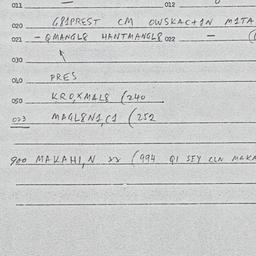 011 012
020 G81PREST CM OWSKAC+1N M1TA
021 - QMANGL8 HANTMANGL8 022 -
030
040 PRES
050 KRO,XMAL8 (240
023 MAGL8N1,C1 (252
900 MAKAHI,N 22 (994 Q1 SEY CLN MAKA